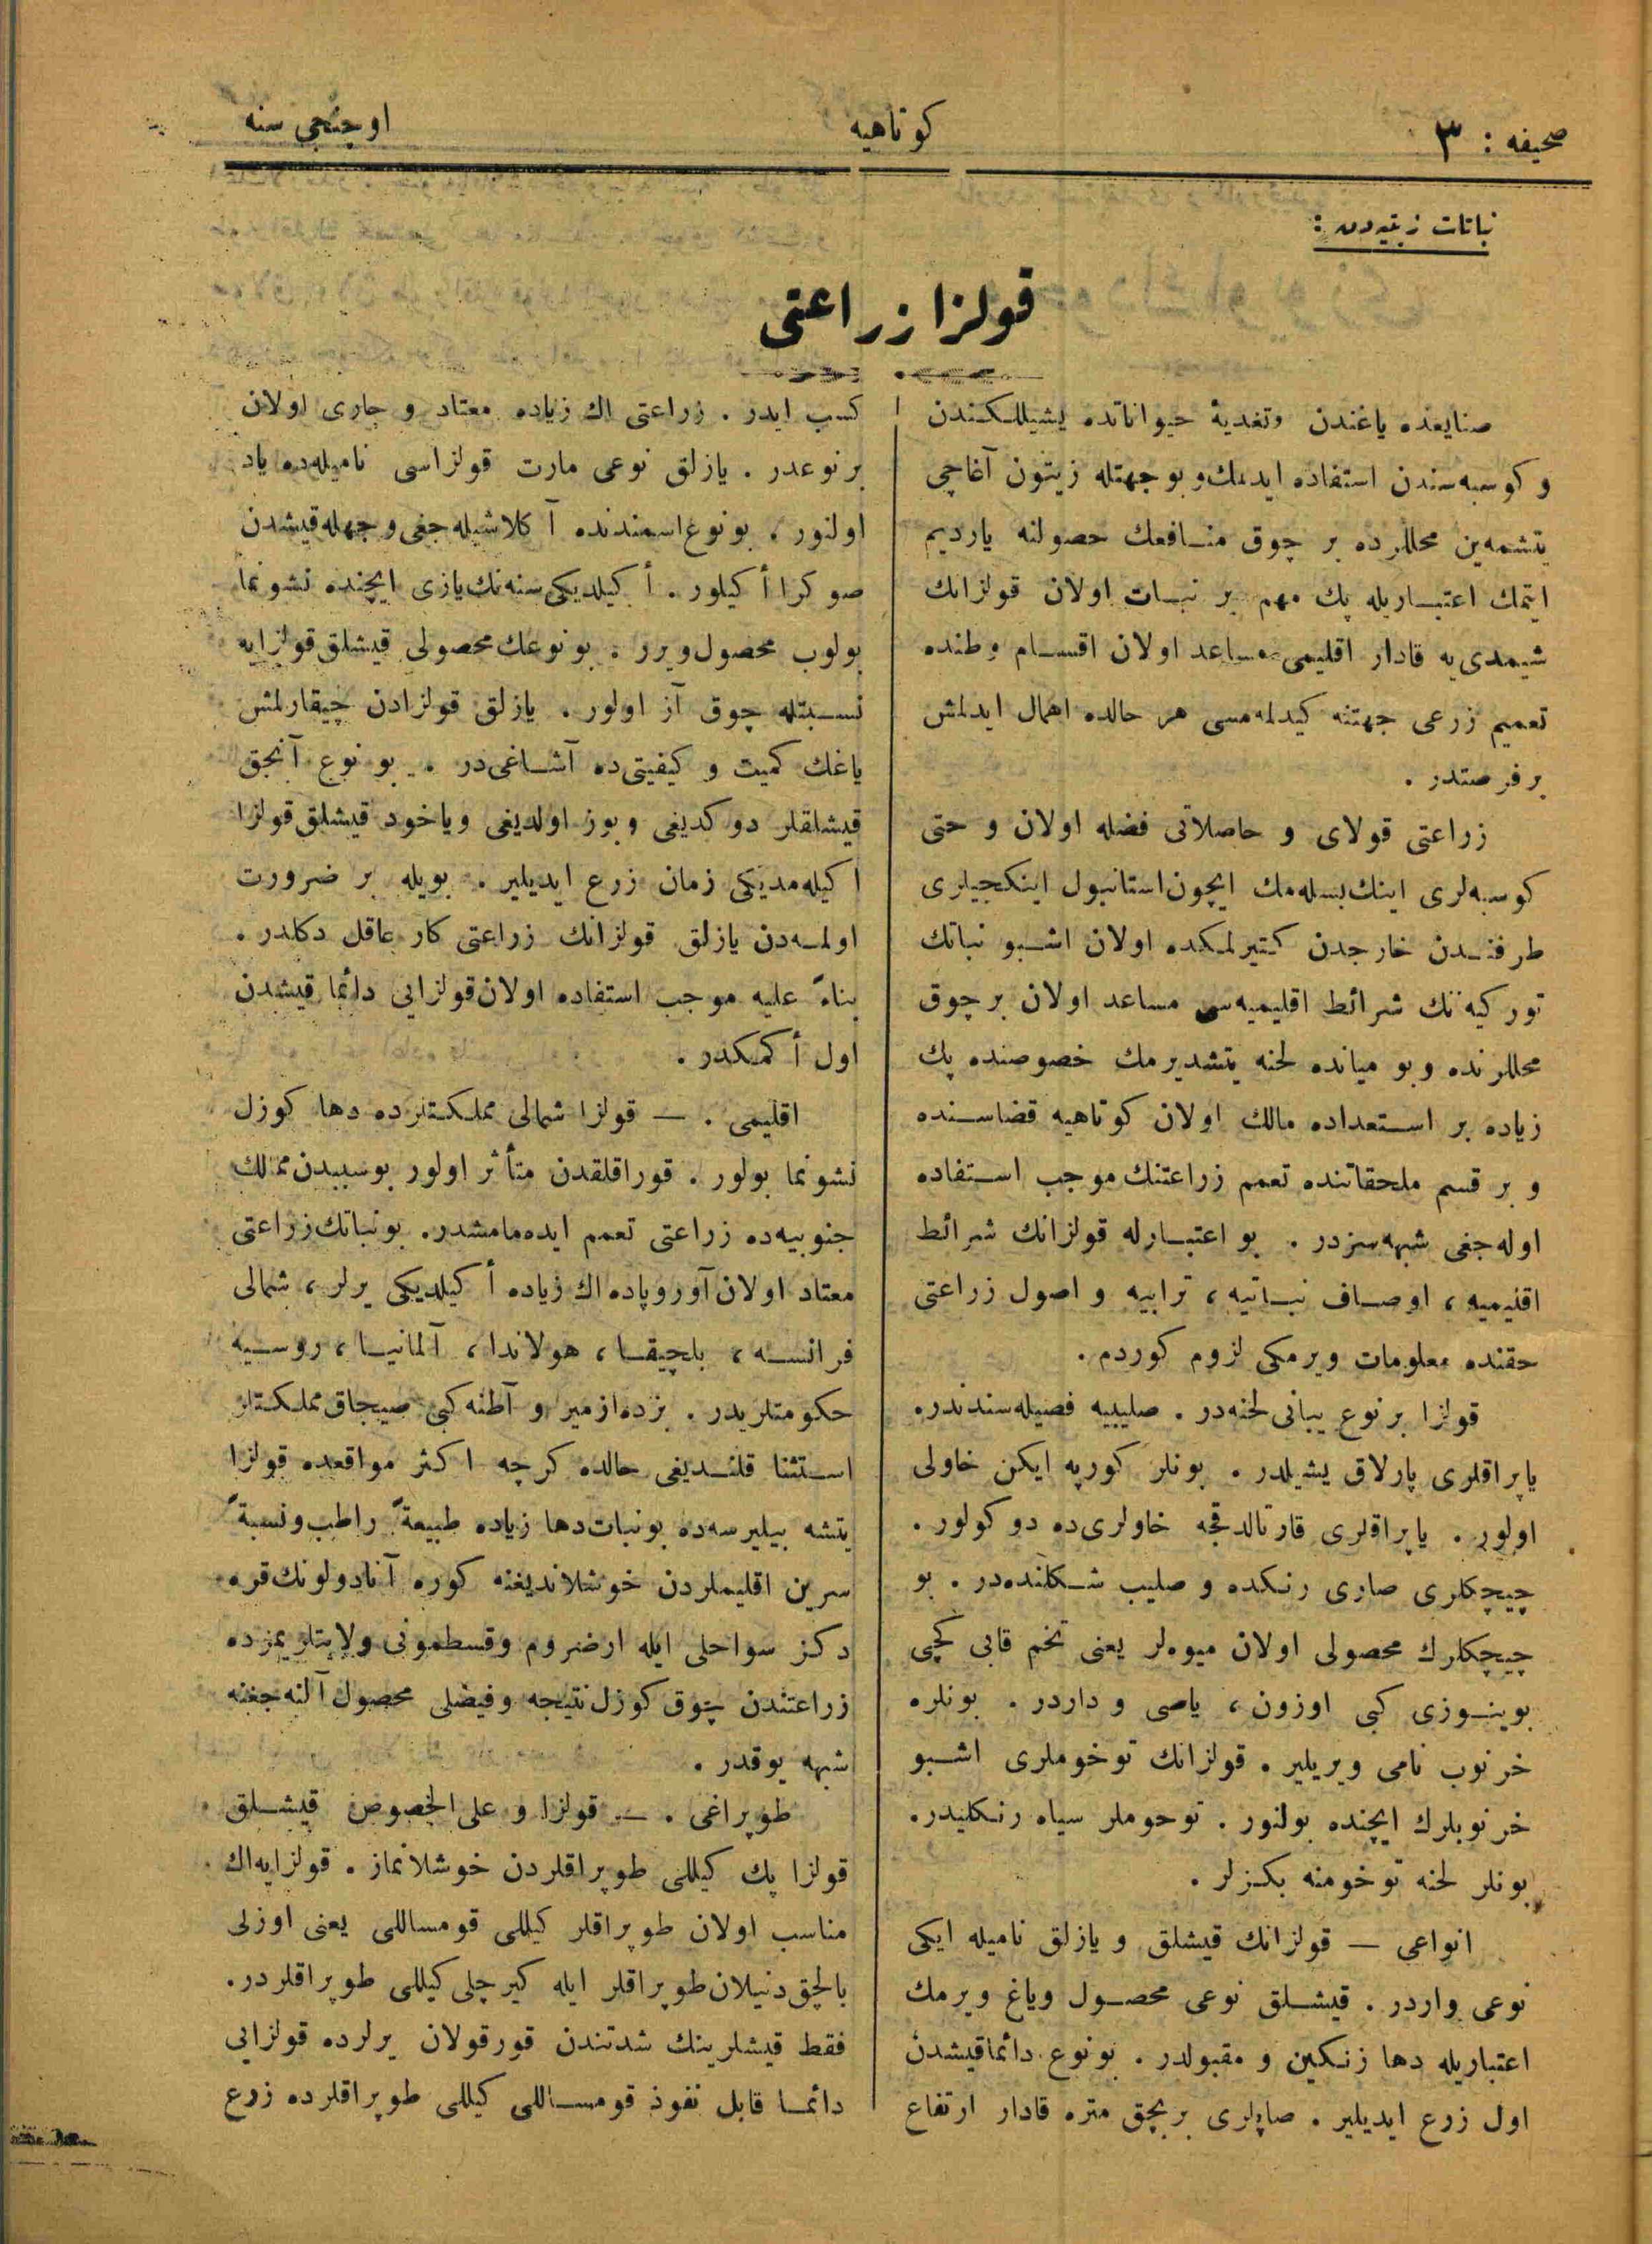 صحیفه : ٣
كوتاهیه
اوچنجی سنه
نباتات زیتیه‌دن :
قولزا زراعتی
صنایعده یاغندن وتغدیهٔ حیواناتده یشیللكندن
و كوسبه‌سندن استفاده ایدلمك و بو جهتله زیتون آغاجی
یتشمه‌ین محللرده بر چوق منافعك حصولنه یاردیم
ایتمك اعتباریله پك مهم بر نبات اولان قولزانك
شیمدی‌یه قادار اقلیمی مساعد اولان اقسام وطنده
تعمیم زرعی جهتنه كیدلمه‌مسی هر حالده اهمال ایدلمش
برفرصتدر .
زراعتی قولای و حاصلاتی فضله اولان و حتی
كوسبه‌لری اینك بسله‌مك ایچون استانبول اینكجیلری
طرفندن خارجدن كتیرلمكده اولان اشبو نباتك
توركیه‌نك شرائط اقلیمیه‌سی مساعد اولان برچوق
محللرنده وبو میانده لحنه یتشدیرمك خصوصنده پك
زیاده بر استعداده مالك اولان كوتاهیه قضاسنده
و بر قسم ملحقاتنده تعمم زراعتنك موجب استفاده
اوله‌جغی شبهه‌سزدر . بو اعتبارله قولزانك شرائط
اقلیمیه ، اوصاف نباتیه ، ترابیه و اصول زراعتی
حقنده معلومات ویرمكی لزوم كوردم .
قولزا برنوع یبانی لحنه‌در . صلیبیه فصیله‌سندندر.
یاپراقلری پارلاق یشیلدر . بونلر كورپه ایكن خاولی
اولور . یاپراقلری قارتالدقجه خاولری‌ده دوكولور .
چیچكلری صاری رنكده و صلیب شكلنده‌در . بو
چیچكلرك محصولی اولان میوه‌لر یعنی تخم قابی كچی
بوینوزی كبی اوزون ، یاصی و داردر . بونلره
خرنوب نامی ویریلیر . قولزانك توخوملری اشبو
خرنوبلرك ایچنده بولنور . توحوملر سیاه رنكلیدر.
بونلر لحنه توخومنه بكزلر .
انواعی — قولزانك قیشلق و یازلق نامیله ایكی
نوعی واردر . قیشلق نوعی محصول ویاغ ویرمك
اعتباریله دها زنكین و مقبولدر . بونوع دائما قیشدن
اول زرع ایدیلیر . صاپلری بربچق متره قادار ارتفاع
كسب ایدر . زراعتی اك زیاده معتاد و جاری اولان
برنوعدر . یازلق نوعی مارت قولزاسی نامیله‌ده یاد
اولنور . بونوع اسمندنده آكلاشیله‌جغی وجهله قیشدن
صوكرا أكیلور . أكیلدیكی سنه‌نك یازی ایچنده نشونما
بولوب محصول ویرر . بونوعك محصولی قیشلق قولزایه
نسبتله چوق آز اولور . یازلق قولزادن چیقارلمش
یاغك كمیت و كیفیتی‌ده آشاغی‌در . بو نوع آنجق
قیشلقلر دوكدیغی وبوز اولدیغی ویاخود قیشلق قولزا
اكیله‌مدیكی زمان زرع ایدیلیر . بویله بر ضرورت
اولمه‌دن یازلق قولزانك زراعتی كار عاقل دكلدر .
بناءً علیه موجب استفاده اولان قولزایی دائما قیشدن
اول أكمكدر .
اقلیمی . — قولزا شمالی مملكتلرده دها كوزل
نشونما بولور . قوراقلقدن متأثر اولور بوسببدن ممالك
جنوبیه‌ده زراعتی تعمم ایده‌مامشدر. بونباتك زراعتی
معتاد اولان آوروپاده اك زیاده أكیلدیكی یرلر ، شمالی
فرانسه ، بلچیقا ، هولاندا ، آلمانیا ، روسیه
حكومتلریدر . بزده ازمیر و آطنه كبی صیجاق مملكتلر
استثنا قلندیغی حالده كرچه اكثر مواقعده قولزا
یتشه بیلیرسه‌ده بونبات دها زیاده طبیعةً راطب ونسبةً
سرین اقلیملردن خوشلاندیغنه كوره آنادولونك قره
دكز سواحلی ایله ارضروم وقسطمونی ولایتلریمزده
زراعتندن چوق كوزل نتیجه وفیضلی محصول آلنه‌جغنه
شبهه یوقدر .
طوپراغی . — قولزا و علی الخصوص قیشلق
قولزا پك كیللی طوپراقلردن خوشلانماز . قولزایه اك
مناسب اولان طوپراقلر كیللی قومساللی یعنی اوزلی
بالچق دنیلان طوپراقلر ایله كیرجلی كیللی طوپراقلردر.
فقط قیشلرینك شدتندن قورقولان یرلرده قولزایی
دائما قابل نفوذ قومساللی كیللی طوپراقلرده زرع